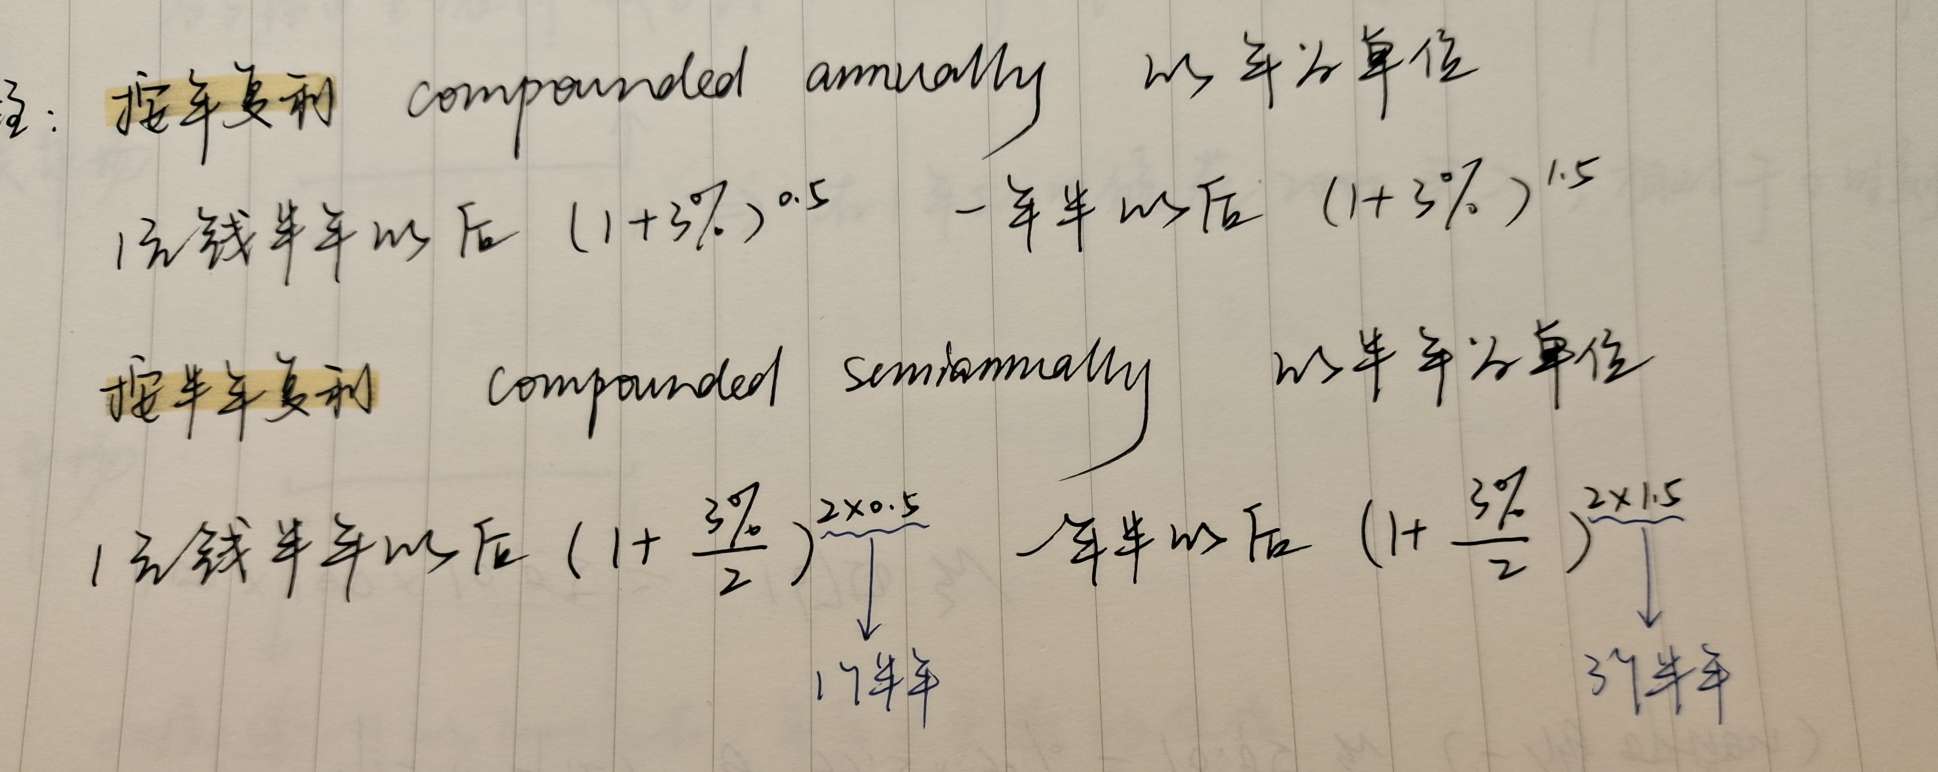 注: 按年复利 compounded annually 以年为单位
1元钱半年以后 (1+3%)^0.5 一年半以后 (1+3%)^1.5
按半年复利 compounded semiannually 以半年为单位
1元钱半年以后 (1+3%/2)^2×0.5 一年半以后 (1+3%/2)^2×1.5
1个半年 3个半年